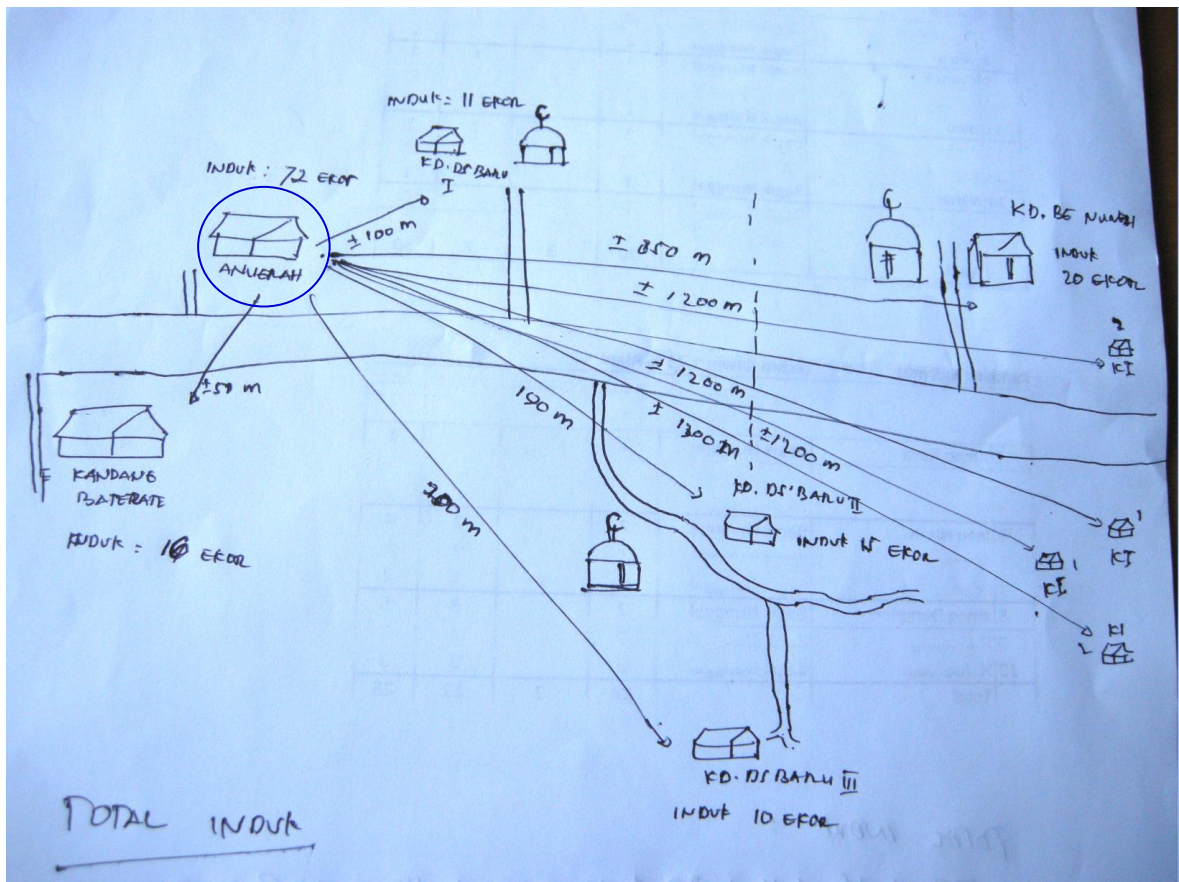 INDUK = 11 EKOR
KD. DS BARU
I
INDUK : 72 EKOR
ANUGRAH
± 100 m
± 850 m
± 1200 m
KD. BE NUNEH
INDUK
20 EKOR
2
KI
± 50 m
KANDANG
BATERATE
INDUK = 16 EKOR
± 1200 m
190 m
± 1300 m
± 1200 m
200 m
KD. DS BARU II
INDUK 15 EKOR
1
KI
1
KI
KI
2
KD. DS BARU III
INDUK 10 EKOR
TOTAL INDUK